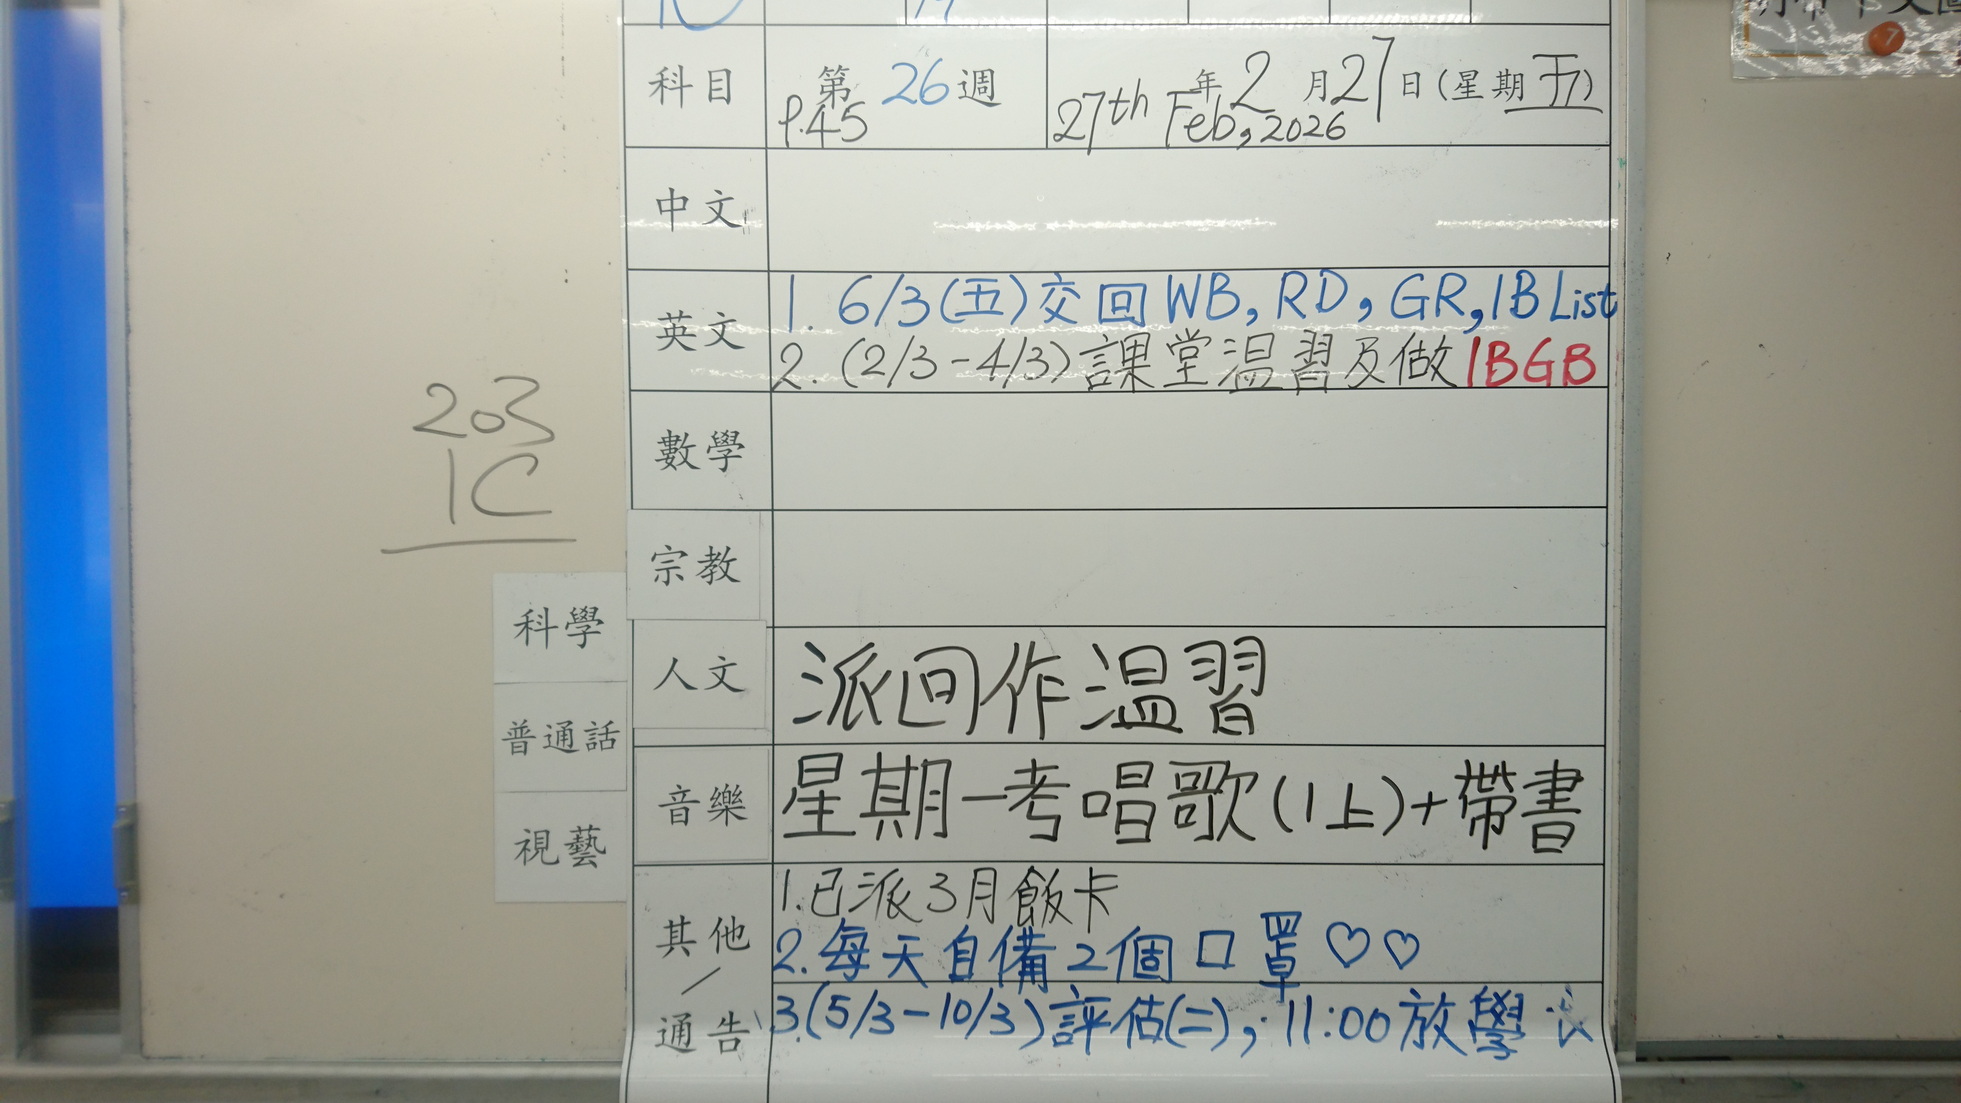 科目 第26週 年2月27日(星期五)
P.45 27th Feb, 2026
中文
英文
1. 6/3(五)交回WB, RD, GR, 1B List
2. (2/3-4/3)課堂温習及做1BGB
數學
宗教
人文 派回作温習
音樂 星期一考唱歌(1上)+帶書
其他/通告
1.已派3月飯卡
2.每天自備2個口罩♡♡
3.(5/3-10/3)評估(二), 11:00放學
203
1C
科學
普通話
視藝